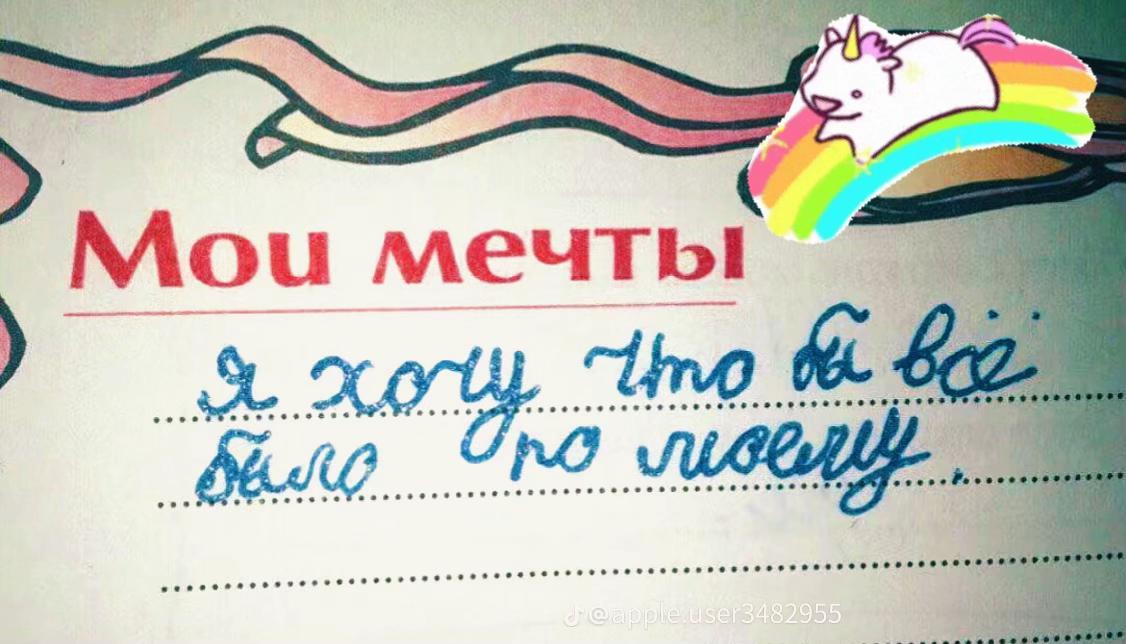 Мои мечты
Я хочу что бы всё
было по моему.
@apple.user3482955